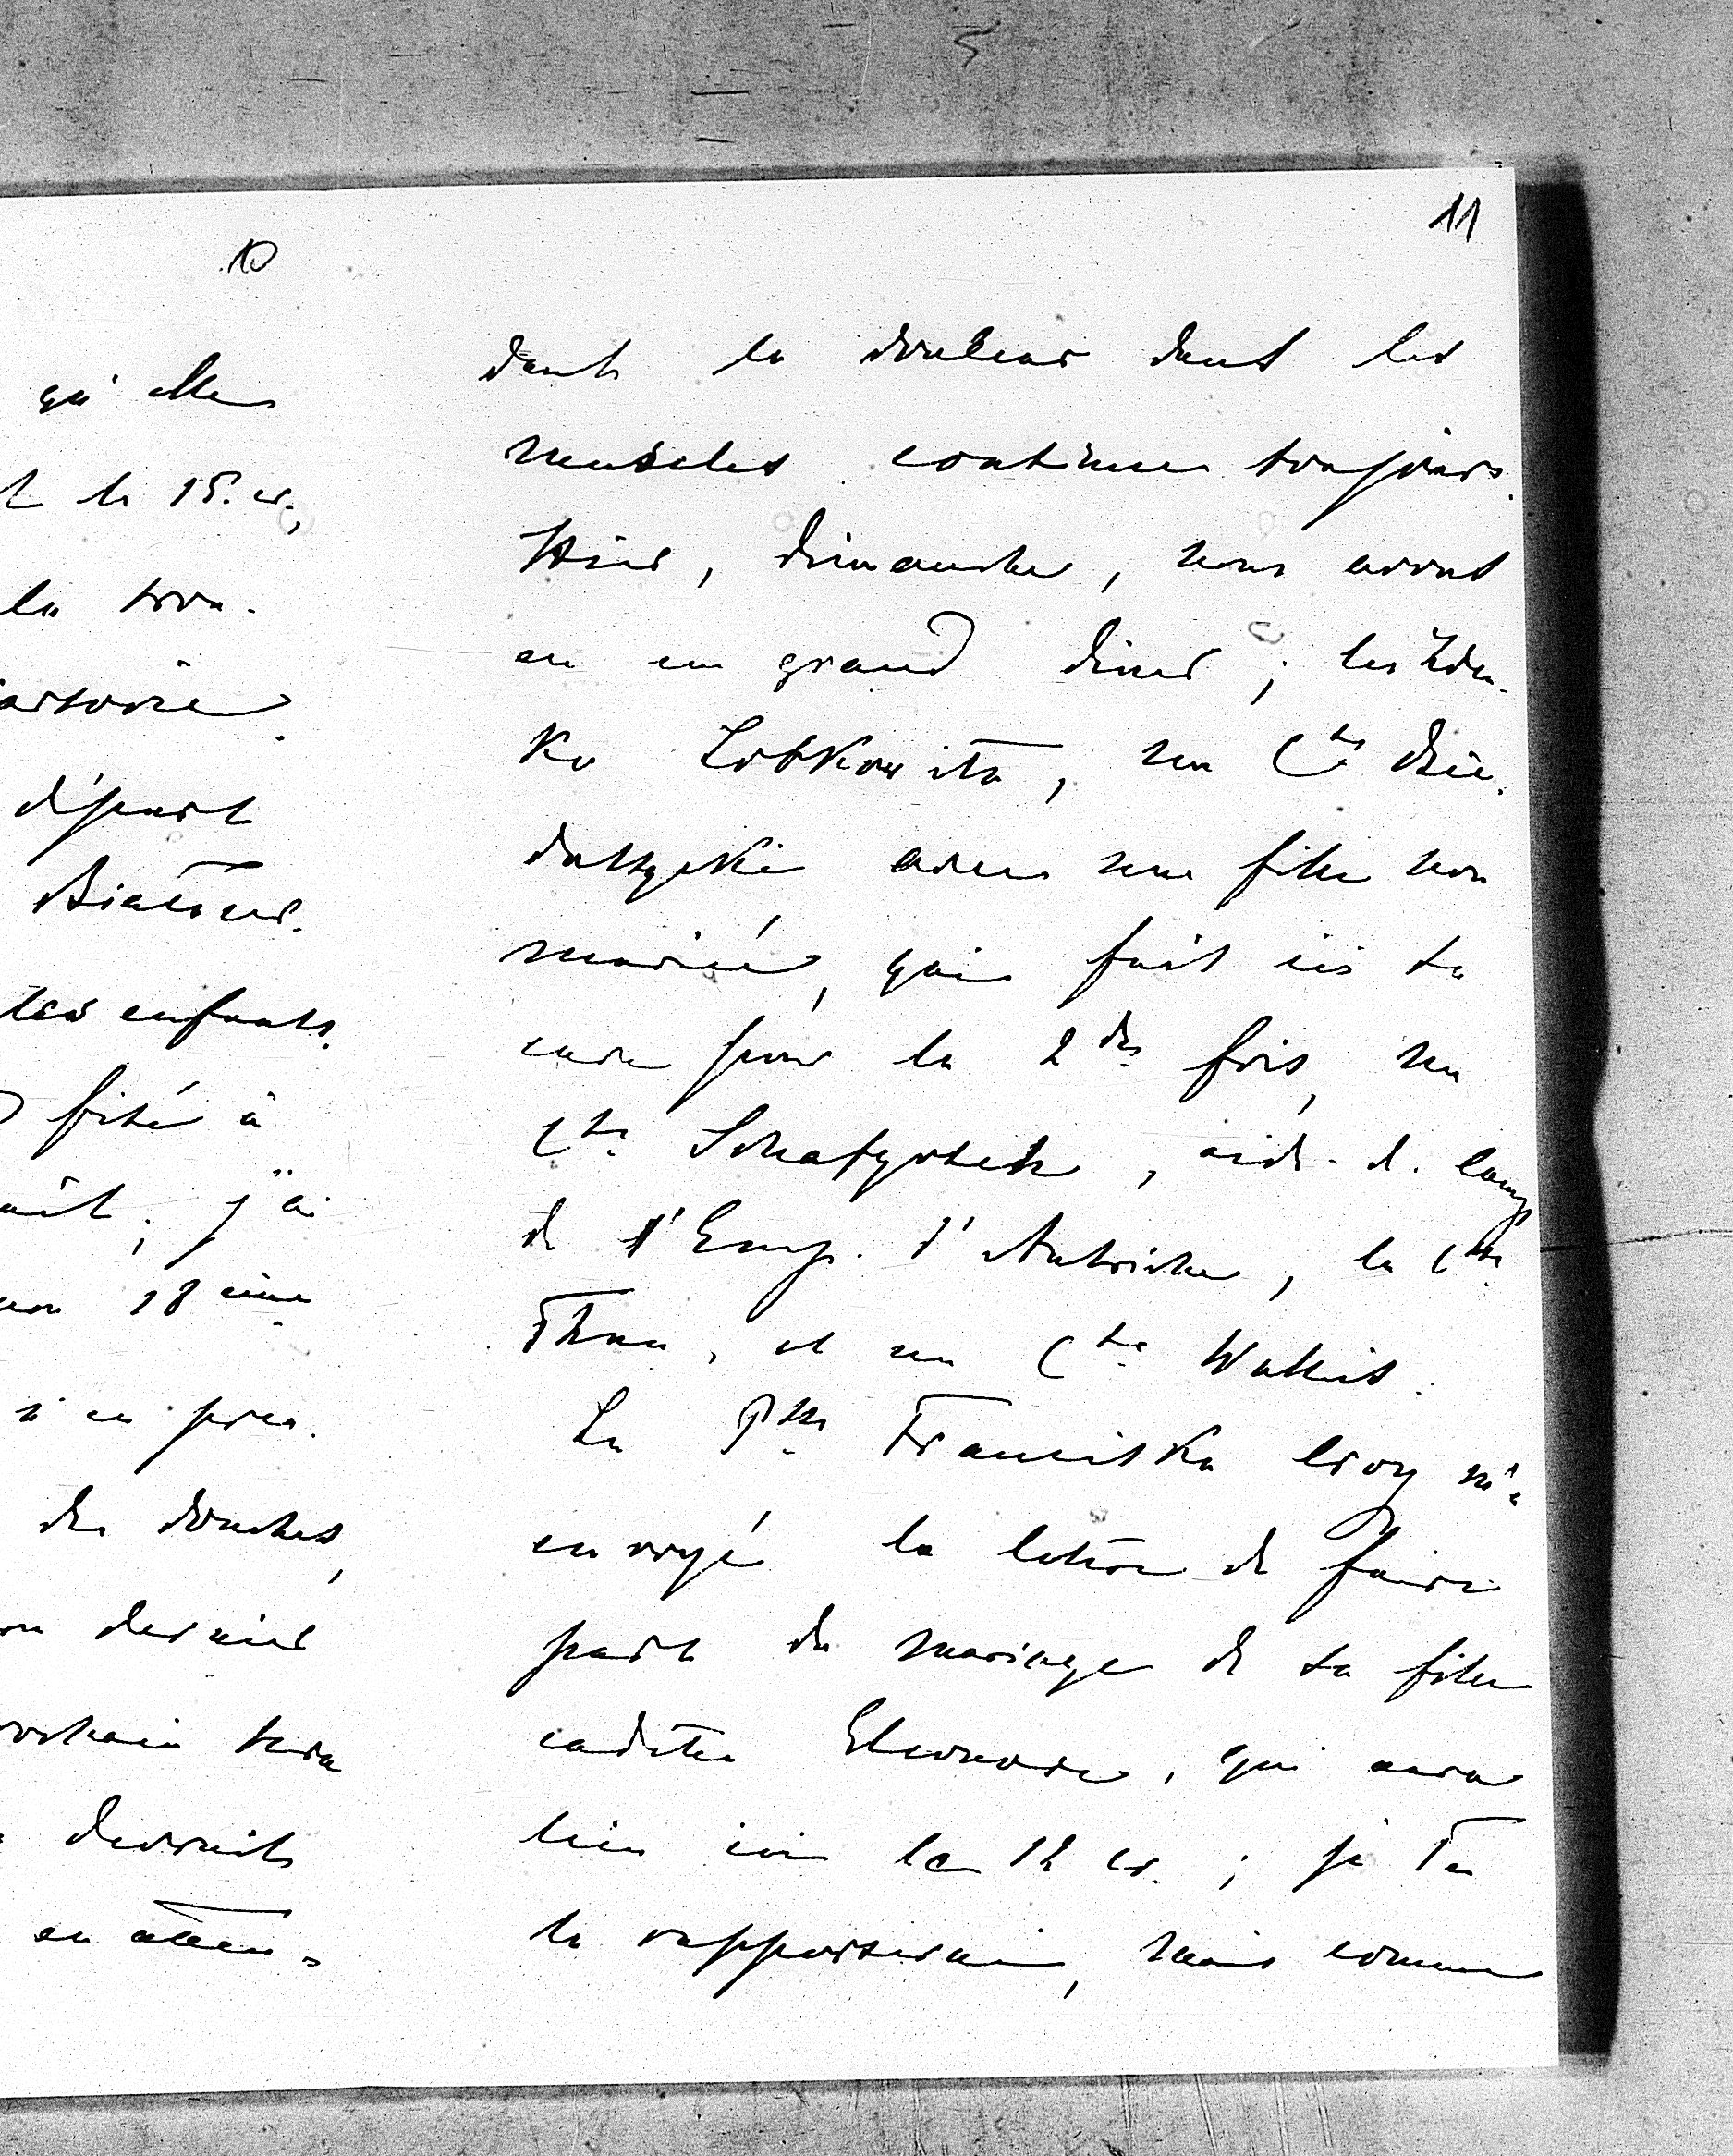 10
qu'elle
t le 15. cr.,
la trou-
départ
les enfants.
fixé à
j'ai
18 ième
si en pren-
des douches,
dernier
sera
devrait
en atten-
11
dant la douleur dans les
muscles continue toujours.
Hier, dimanche, nous avons
eu un grand diner ; les Zden-
ko Lobkowitz, un Cte Dzie-
duszycki avec une fille non
mariée, qui fait ici sa
cure pour la 2de fois, un
Cte Schafgotsch, aide-d. camp
de l'Emp. d'Autriche, la Ctsse
Thun, et un Cte Wallis.
La Psse Franciska Croy m'a
envoyé la lettre de faire
part du mariage de sa fille
cadette Eleonore, qui aura
lieu ici le 12 cr. ; je Te
la rapporterai, mais comme